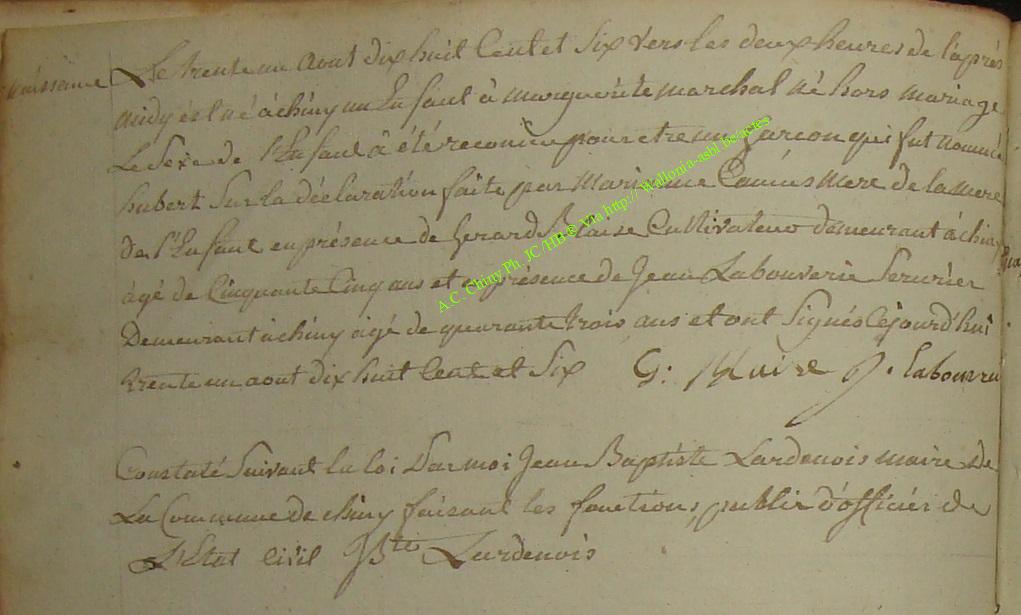 Naissance Le trente un aout dix huit Cent et Six vers les deux heures de l'après
midy est né à chiny un Enfant à marguerite marchal né hors mariage
Le Sexe de l'Enfant à été reconnu pour etre un garcon qui fut nommé
hubert Sur la déclaration faite par Marianne Camus Mere de la mere
de l'Enfant en présence de Gerard Blaise Cultivateur demeurant à chiny
âgé de Cinquante Cinq ans et en présence de Jean Labouverie Serurier
Demeurant à chiny âgé de quarante trois ans et ont Signés Cejourd'hui
trente un aout dix huit Cent et Six G: J. labouveri
Constaté Suivant la loi Par moi Jean Baptiste Lardenois maire de
La Commune de chiny faisant les fonctions public d'officier de
L'Etat Civil JBte Lardenois
A.C. Chiny Ph. JC /HB ® Via http:// Wallonia-asbl.be/actes